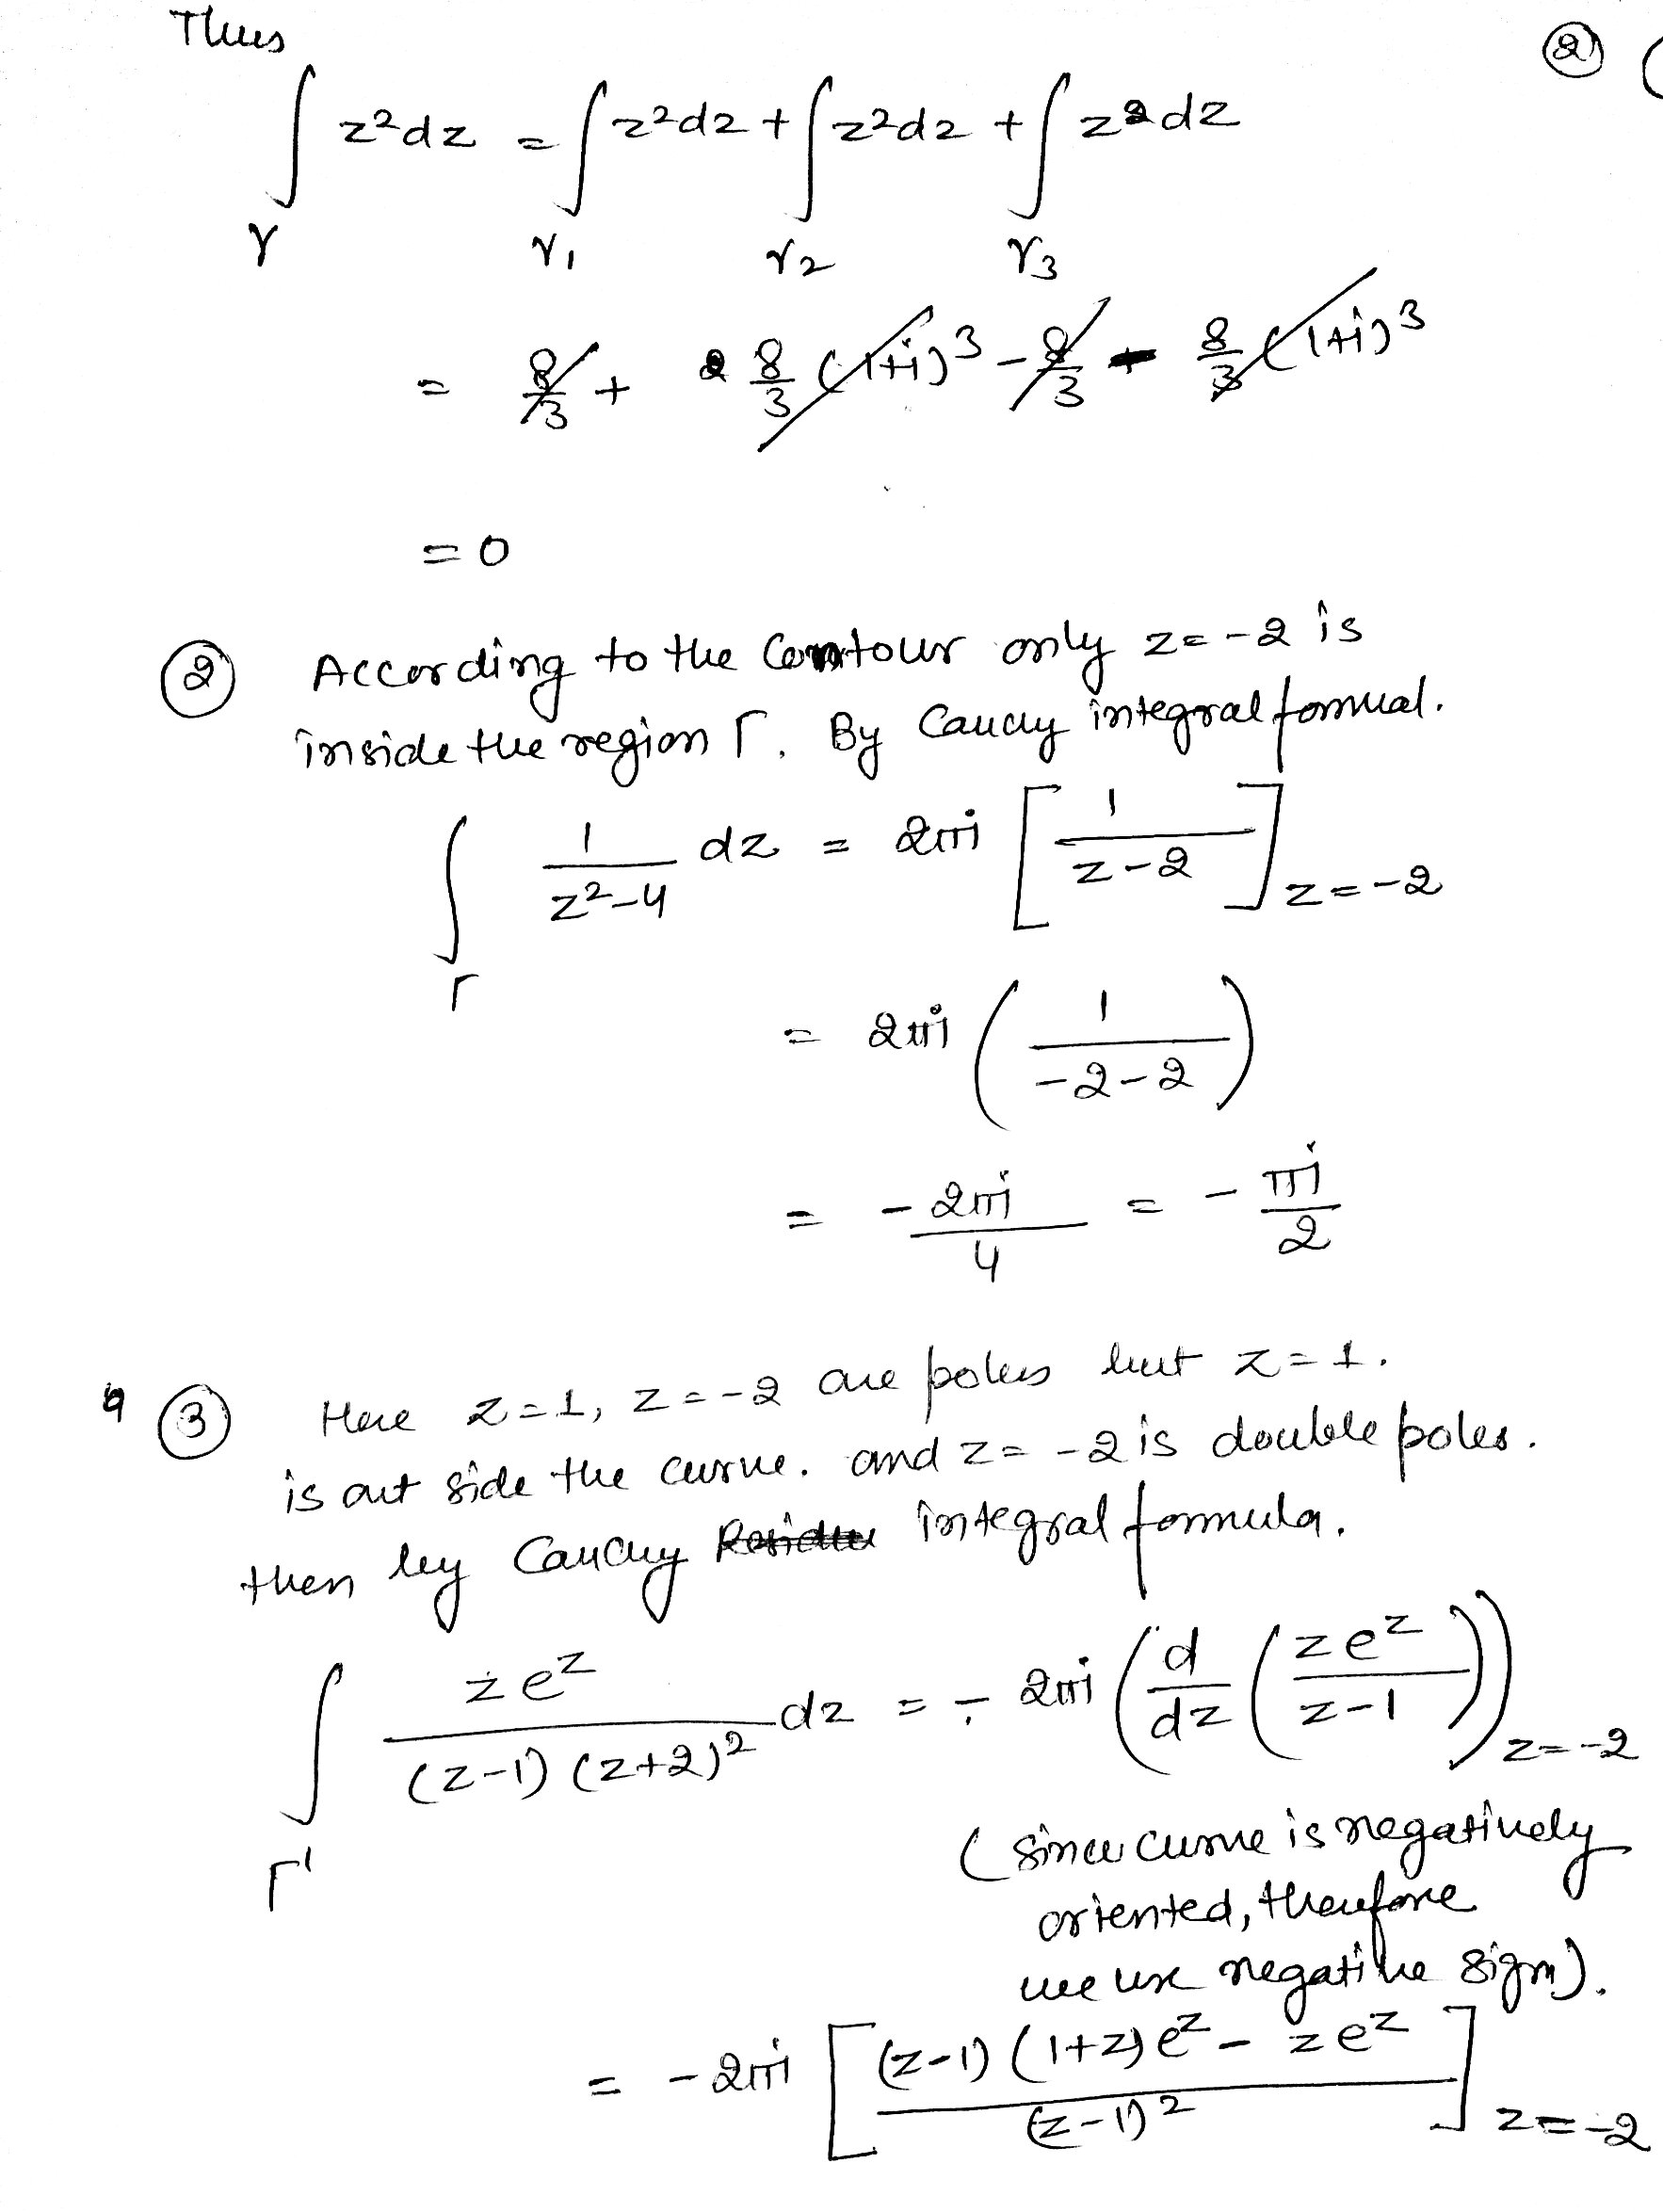 Thus
② (
∫_γ z²dz = ∫_γ₁ z²dz + ∫_γ₂ z²dz + ∫_γ₃ z²dz
= 8/3 + 8/3 (1+i)³ - 8/3 - 8/3 (1+i)³
= 0
② According to the Contour only z = -2 is
inside the region Γ. By Caucuy integral formual.
∫_Γ 1/(z²-4) dz = 2πi [1/(z-2)]_z=-2
= 2πi (1/(-2-2))
= -2πi/4 = -πi/2
③ Here z=1, z=-2 are poles but z=1.
is out side the curve. and z=-2 is double poles.
then by Caucuy Residue integral formula.
∫_Γ' ze^z/((z-1)(z+2)²) dz = - 2πi (d/dz (ze^z/(z-1)))_z=-2
(since curve is negatively
oriented, therefore
we use negative sign).
= -2πi [((z-1)(1+z)e^z - ze^z)/(z-1)²]_z=-2